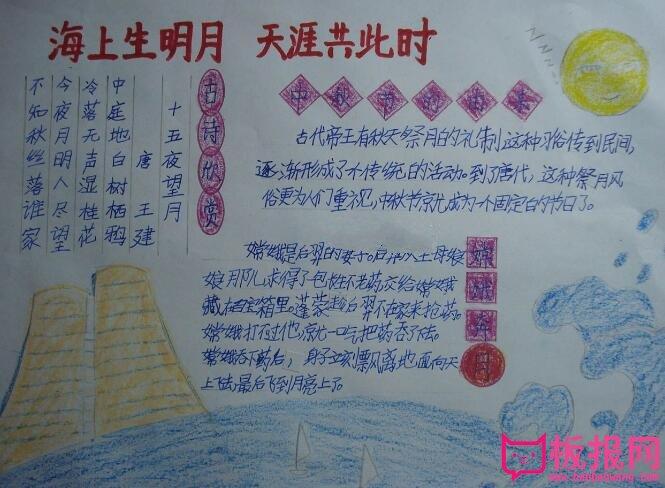 海上生明月 天涯共此时
古诗欣赏
十五夜望月
唐 王建
中庭地白树栖鸦
冷落无声湿桂花
今夜月明人尽望
不知秋丝落谁家
中秋节的由来
古代帝王有秋天祭月的礼制,这种习俗传到民间,
逐渐形成了个传统的活动。到了唐代,这种祭月风
俗更为人们重视,中秋节就成为一个固定的节日了。
嫦娥奔月
嫦娥是后羿的妻子。后羿从王母娘
娘月那儿求得了包 性不老药交给嫦娥
藏在百宝箱里。蓬蒙趁后羿不在家来抢药。
嫦娥打不过他,就一口气把药吞了下去。
嫦娥吞下药后,身子立刻飘风离地面向天
上飞去,最后飞到月亮上了。
NNNN
板报网